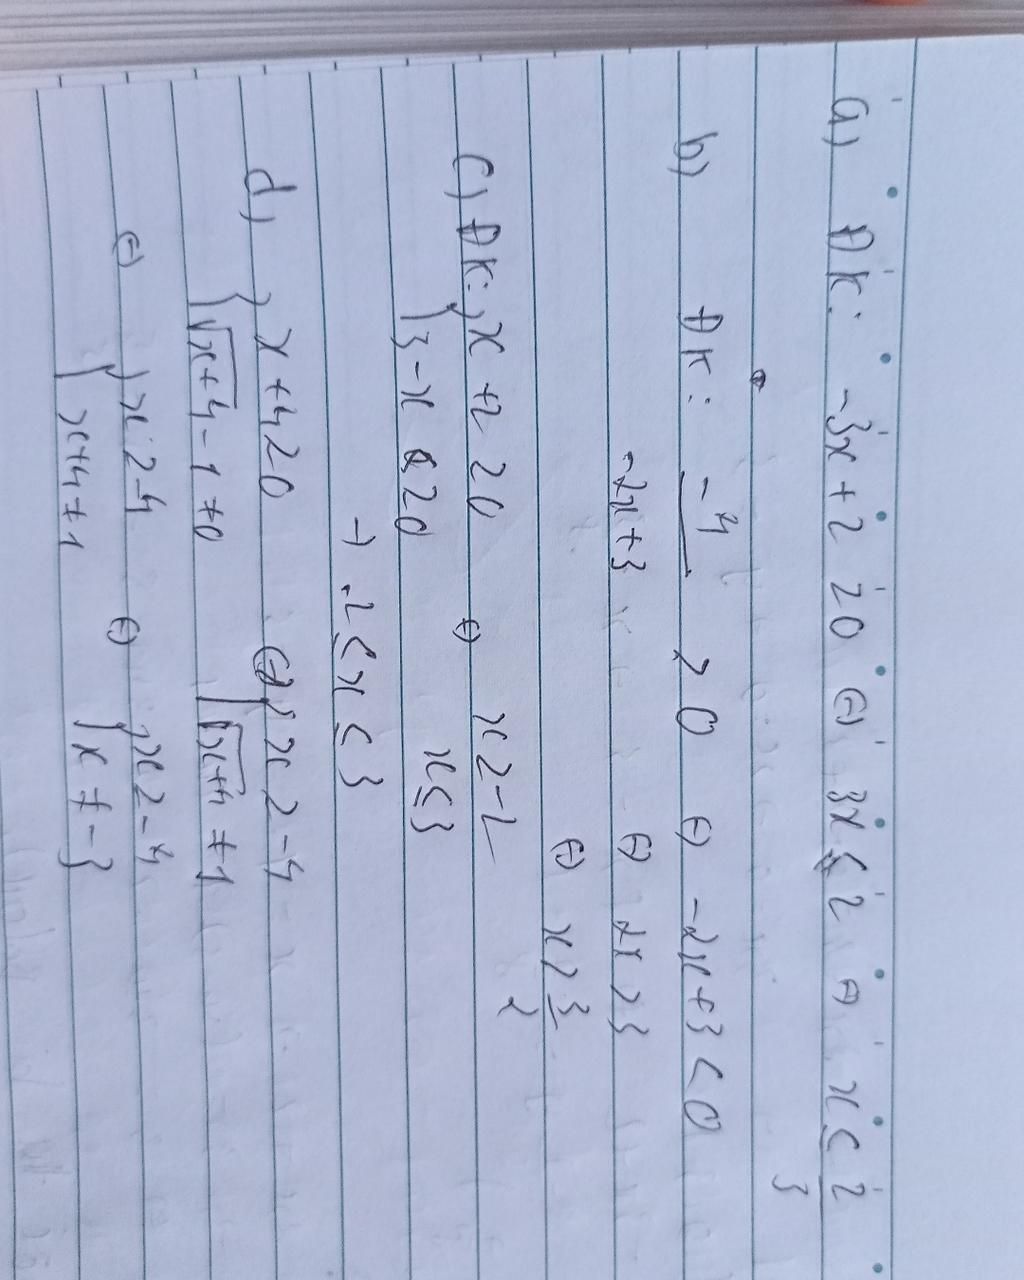 a) ĐK: -3x + 2 ≥ 0 ⇔ 3x ≤ 2 ⇔ x ≤ 2/3
b) ĐK: -4/(-2x+3) > 0 ⇔ -2x+3 < 0
⇔ 2x > 3
⇔ x > 3/2
c) ĐK: { x + 2 ≥ 0 ⇔ x ≥ -2
{ 3 - x ≥ 0 x ≤ 3
→ -2 ≤ x ≤ 3
d) { x + 4 ≥ 0 ⇔ { x ≥ -4
{ √(x+4) - 1 ≠ 0 { √(x+4) ≠ 1
⇔ { x ≥ -4 ⇔ { x ≥ -4
{ x+4 ≠ 1 { x ≠ -3